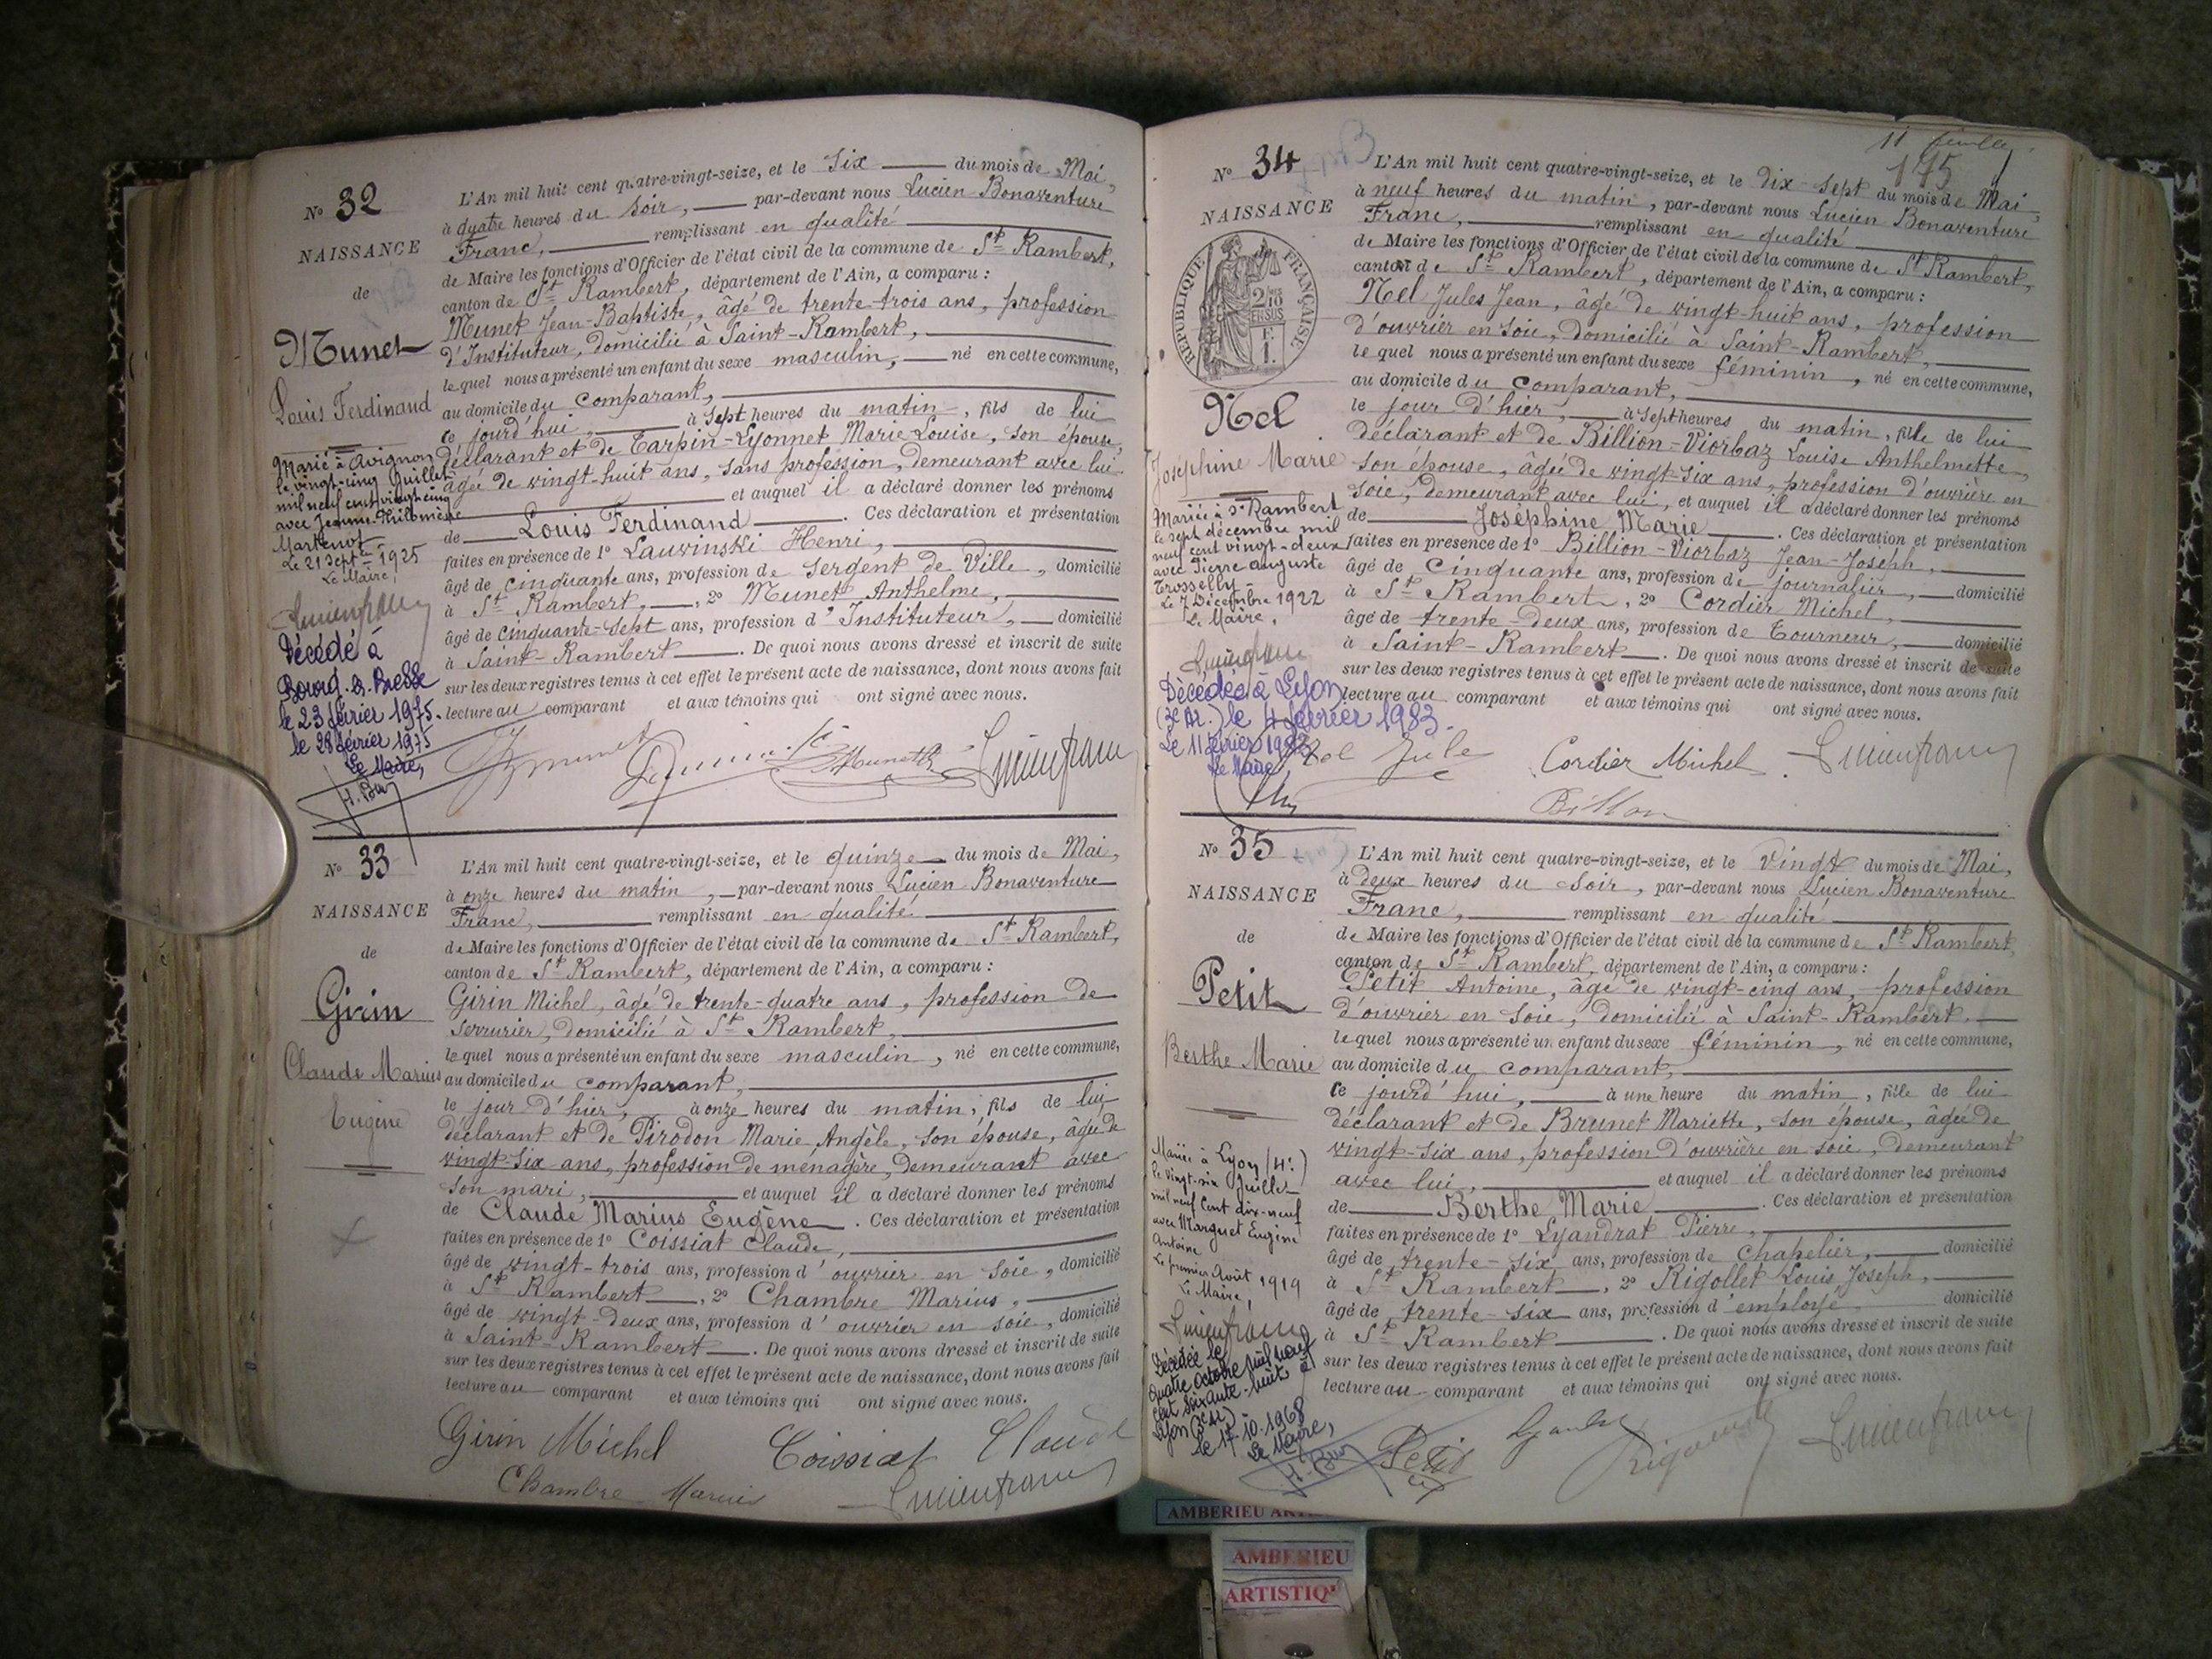 N° 32
NAISSANCE
de
Munet
Louis Ferdinand
Marié à Avignon
le vingt-cinq Juillet
mil neuf cent vingt cinq
avec Jeanne Philomène
Le 21 Septbre 1925
Le Maire,
Lucien franc
Décédé à
Bourg-en-Bresse
le 23 février 1975.
le 28 février 1975
Le Maire,
L'An mil huit cent quatre-vingt-seize, et le six du mois de Mai,
à quatre heures du soir, par-devant nous Lucien Bonaventure
Franc, remplissant en qualité
de Maire les fonctions d'Officier de l'état civil de la commune de St Rambert,
canton de St Rambert, département de l'Ain, a comparu :
Munet Jean-Baptiste, âgé de trente-trois ans, profession
d'Instituteur, domicilié à Saint-Rambert,
lequel nous a présenté un enfant du sexe masculin, né en cette commune,
au domicile du comparant,
ce jourd'hui, à sept heures du matin, fils de lui
déclarant et de Tarpin-Lyonnet Marie Louise, son épouse,
âgée de vingt-huit ans, sans profession, demeurant avec lui
et auquel il a déclaré donner les prénoms
de Louis Ferdinand. Ces déclaration et présentation
faites en présence de 1° Lauwinski Henri,
âgé de cinquante ans, profession de sergent de Ville, domicilié
à St Rambert, 2° Munet Anthelme,
âgé de cinquante-sept ans, profession d'Instituteur, domicilié
à Saint-Rambert. De quoi nous avons dressé et inscrit de suite
sur les deux registres tenus à cet effet le présent acte de naissance, dont nous avons fait
lecture au comparant et aux témoins qui ont signé avec nous.
Munet
Lucien franc
N° 33
NAISSANCE
de
Girin
Claude Marius
Eugène
L'An mil huit cent quatre-vingt-seize, et le quinze du mois de Mai,
à onze heures du matin, par-devant nous Lucien Bonaventure
Franc, remplissant en qualité
de Maire les fonctions d'Officier de l'état civil de la commune de St Rambert,
canton de St Rambert, département de l'Ain, a comparu :
Girin Michel, âgé de trente-quatre ans, profession de
serrurier, domicilié à St Rambert,
lequel nous a présenté un enfant du sexe masculin, né en cette commune,
au domicile du comparant,
le jour d'hier, à onze heures du matin, fils de lui
déclarant et de Pirodon Marie Angèle, son épouse, âgée de
vingt-six ans, profession de ménagère, demeurant avec
son mari, et auquel il a déclaré donner les prénoms
de Claude Marius Eugène. Ces déclaration et présentation
faites en présence de 1° Coissiat Claude,
âgé de vingt-trois ans, profession d'ouvrier en soie, domicilié
à St Rambert, 2° Chambre Marius,
âgé de vingt-deux ans, profession d'ouvrier en soie, domicilié
à Saint-Rambert. De quoi nous avons dressé et inscrit de suite
sur les deux registres tenus à cet effet le présent acte de naissance, dont nous avons fait
lecture au comparant et aux témoins qui ont signé avec nous.
Girin Michel Coissiat Claude
Chambre Marius Lucien franc
11 feuillet
175
N° 34
NAISSANCE
RÉPUBLIQUE FRANÇAISE
Nel
Joséphine Marie
Mariée à St Rambert
le sept décembre mil
neuf cent vingt-deux
avec Pierre auguste
Trosselly
Le 7 Décembre 1922
Le Maire,
Lucien franc
Décédée à Lyon
(3e Ar.) le 4 février 1983.
Le Maire,
L'An mil huit cent quatre-vingt-seize, et le dix-sept du mois de Mai,
à neuf heures du matin, par-devant nous Lucien Bonaventure
Franc, remplissant en qualité
de Maire les fonctions d'Officier de l'état civil de la commune de St Rambert,
canton de St Rambert, département de l'Ain, a comparu :
Nel Jules Jean, âgé de vingt-huit ans, profession
d'ouvrier en soie, domicilié à Saint-Rambert,
lequel nous a présenté un enfant du sexe féminin, né en cette commune,
au domicile du comparant,
le jour d'hier, à sept heures du matin, fille de lui
déclarant et de Billion-Viorbaz Louise Anthelmette,
son épouse, âgée de vingt-six ans, profession d'ouvrière en
soie, demeurant avec lui, et auquel il a déclaré donner les prénoms
de Joséphine Marie. Ces déclaration et présentation
faites en présence de 1° Billion-Viorbaz Jean-Joseph,
âgé de cinquante ans, profession de journalier, domicilié
à St Rambert, 2° Cordier Michel,
âgé de trente-deux ans, profession de Tourneur, domicilié
à Saint-Rambert. De quoi nous avons dressé et inscrit de suite
sur les deux registres tenus à cet effet le présent acte de naissance, dont nous avons fait
lecture au comparant et aux témoins qui ont signé avec nous.
Nel Jule Cordier Michel Lucien franc
Billion
N° 35
NAISSANCE
de
Petit
Berthe Marie
Mariée à Lyon (4e)
le vingt-six Juillet
mil neuf Cent dix-neuf
avec Marguet Eugène
Antoine
Le premier Août 1919
Le Maire,
Lucien franc
Décédée le
quatre octobre mil neuf
cent soixante-huit à
Le 17.10.1968
Le Maire,
L'An mil huit cent quatre-vingt-seize, et le vingt du mois de Mai,
à deux heures du soir, par-devant nous Lucien Bonaventure
Franc, remplissant en qualité
de Maire les fonctions d'Officier de l'état civil de la commune de St Rambert,
canton de St Rambert, département de l'Ain, a comparu :
Petit Antoine, âgé de vingt-cinq ans, profession
d'ouvrier en soie, domicilié à Saint-Rambert,
lequel nous a présenté un enfant du sexe féminin, né en cette commune,
au domicile du comparant,
ce jourd'hui, à une heure du matin, fille de lui
déclarant et de Brunet Mariette, son épouse, âgée de
vingt-six ans, profession d'ouvrière en soie, demeurant
avec lui, et auquel il a déclaré donner les prénoms
de Berthe Marie. Ces déclaration et présentation
faites en présence de 1° Lyandrat Pierre,
âgé de trente-six ans, profession de chapelier, domicilié
à St Rambert, 2° Rigollet Louis Joseph,
âgé de trente-six ans, profession d'employé domicilié
à St Rambert. De quoi nous avons dressé et inscrit de suite
sur les deux registres tenus à cet effet le présent acte de naissance, dont nous avons fait
lecture au comparant et aux témoins qui ont signé avec nous.
Petit Lucien franc
AMBERIEU
AMBERIEU
ARTISTIQ